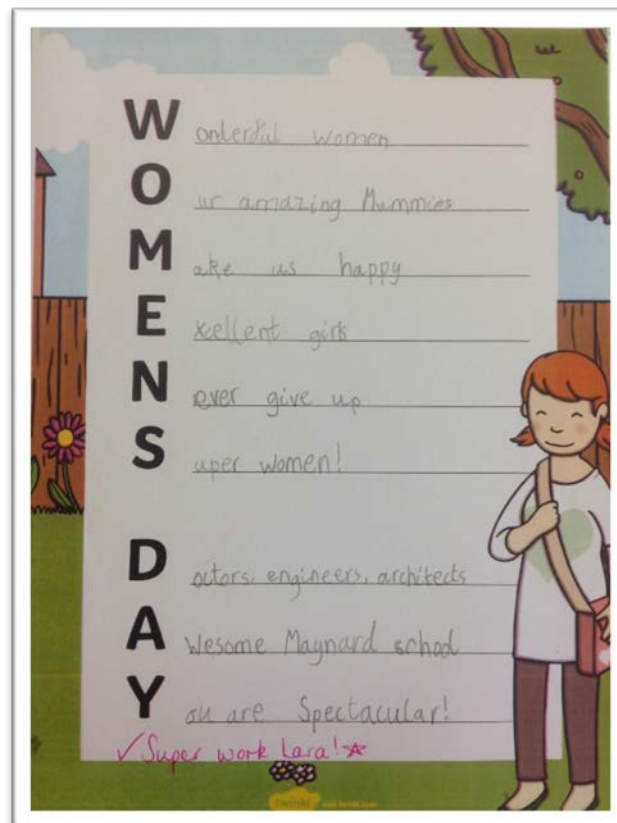 Wonderful women
Our amazing Mummies
Make us happy
Excellent girls
Never give up
Super women!
Doctors, engineers, architects
AWesome Maynard school
You are Spectacular!
✓ Super work Lara! ☆
twinkl